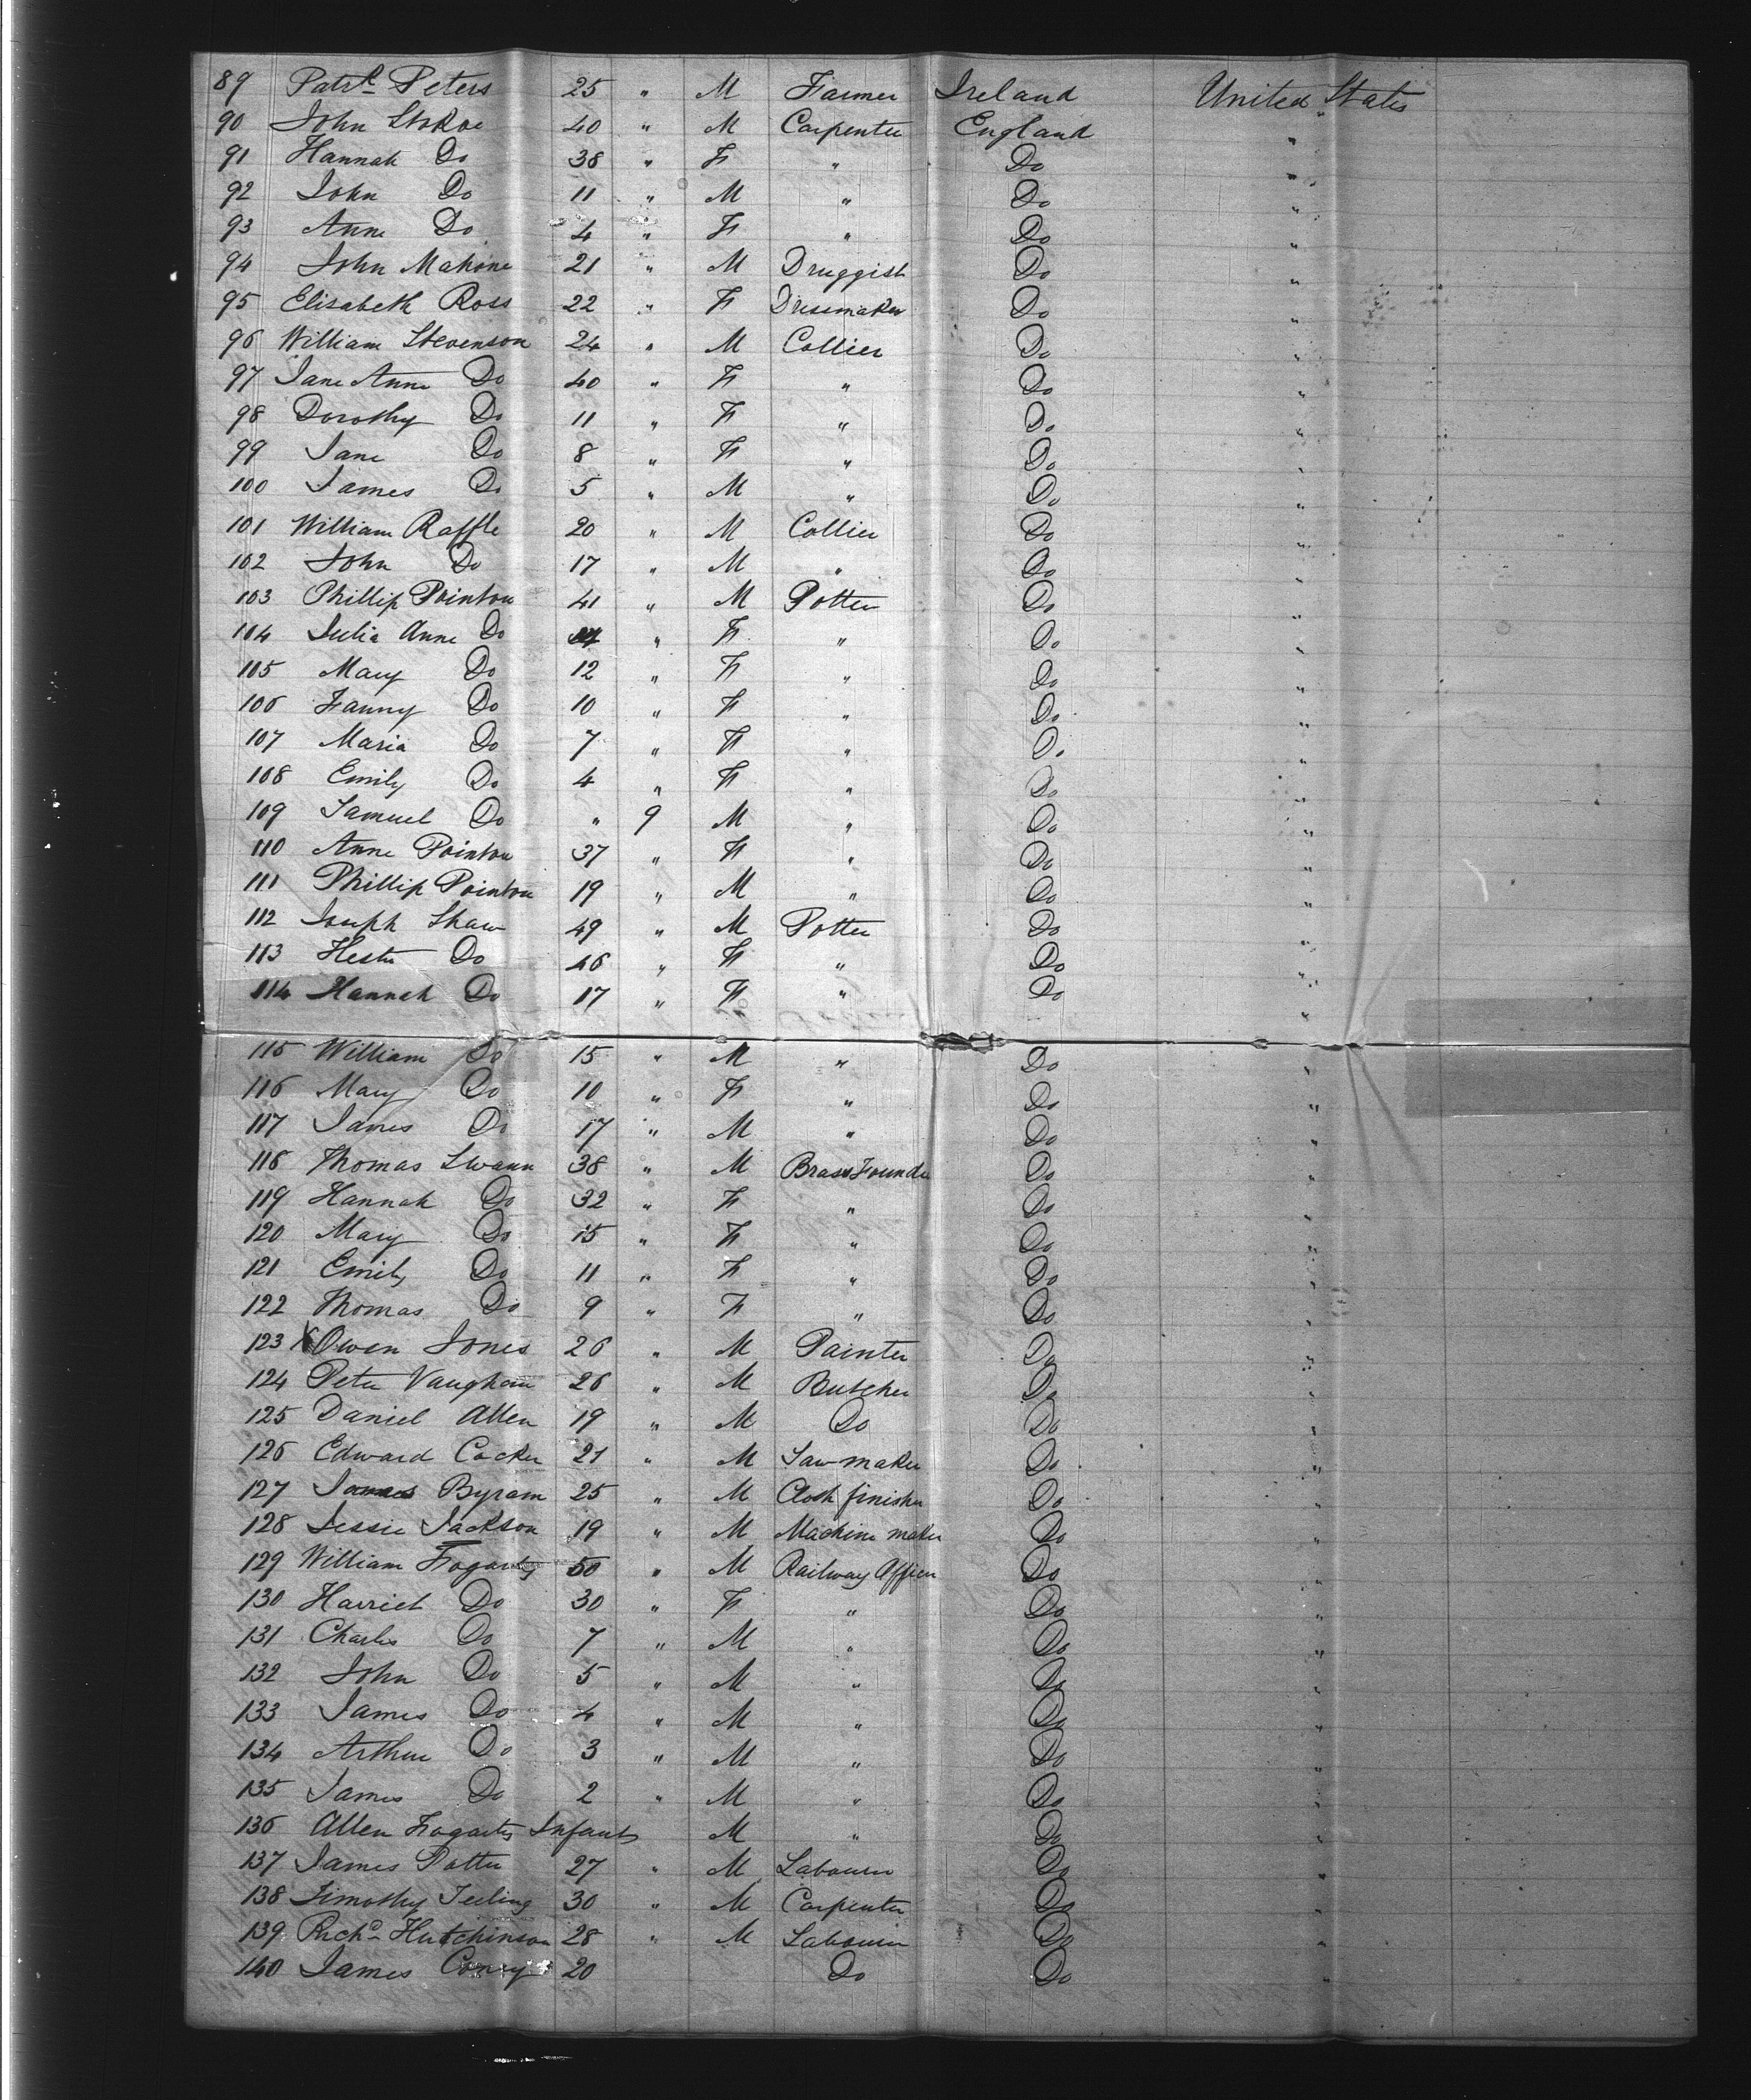 89 Patrk Peters 25 " M Farmer Ireland United States
90 John Stokoe 40 " M Carpenter England "
91 Hannah Do 38 " F " Do "
92 John Do 11 " M " Do "
93 Anne Do 4 " F " Do "
94 John Mahone 21 " M Druggist Do "
95 Elisabeth Ross 22 " F Dressmaker Do "
96 William Stevenson 24 " M Collier Do "
97 Jane Anne Do 40 " F " Do "
98 Dorothy Do 11 " F " Do "
99 Jane Do 8 " F " Do "
100 James Do 5 " M " Do "
101 William Raffle 20 " M Collier Do "
102 John Do 17 " M " Do "
103 Phillip Pointon 41 " M Potter Do "
104 Julia Anne Do " F " Do "
105 Mary Do 12 " F " Do "
106 Fanny Do 10 " F " Do "
107 Maria Do 7 " F " Do "
108 Emily Do 4 " F " Do "
109 Samuel Do " 9 M " Do "
110 Anne Pointon 37 " F " Do "
111 Phillip Pointon 19 " M " Do "
112 Joseph Shaw 49 " M Potter Do "
113 Hester Do 46 " F " Do "
114 Hannah Do 17 " F " Do "
115 William Do 15 " M " Do "
116 Mary Do 10 " F " Do "
117 James Do 17 " M " Do "
118 Thomas Swann 38 " M Brass Founder Do "
119 Hannah Do 32 " F " Do "
120 Mary Do 15 " F " Do "
121 Emily Do 11 " F " Do "
122 Thomas Do 9 " F " Do "
123 X Owen Jones 26 " M Painter Do "
124 Peter Vaughan 26 " M Butcher Do "
125 Daniel Allen 19 " M Do Do "
126 Edward Cocker 21 " M Saw maker Do "
127 James Byram 25 " M Cloth finisher Do "
128 Jessie Jackson 19 " M Machine maker Do "
129 William Fogarty 50 " M Railway Officer Do "
130 Harriet Do 30 " F " Do "
131 Charles Do 7 " M " Do "
132 John Do 5 " M " Do "
133 James Do 4 " M " Do "
134 Arthur Do 3 " M " Do "
135 James Do 2 " M " Do "
136 Allen Fogarty Infant M " Do "
137 James Potter 27 " M Labourer Do "
138 Timothy Teeling 30 " M Carpenter Do "
139 Richd Hutchinson 28 " M Labourer Do "
140 James 20 Do Do "